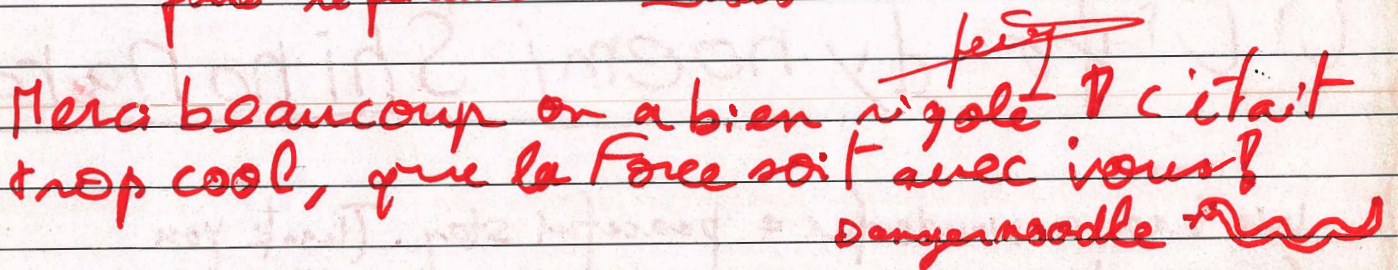 Merci beaucoup on a bien rigolé ! c'était
trop cool, que la Force soit avec vous !
Dangernoodle